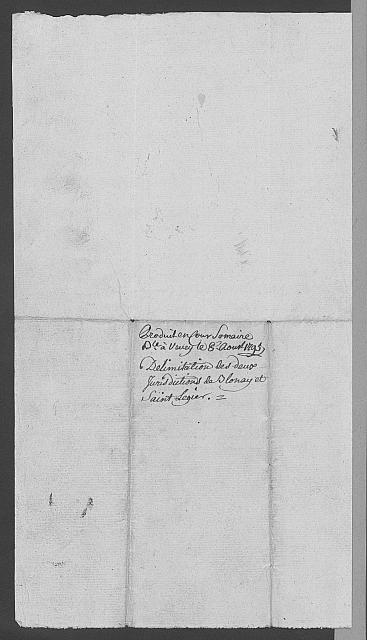 Produit en Cour Somaire
à Vevey le 8e Aout
Delimitation des deux
Jurisdictions de Blonay et
Saint Legier. =